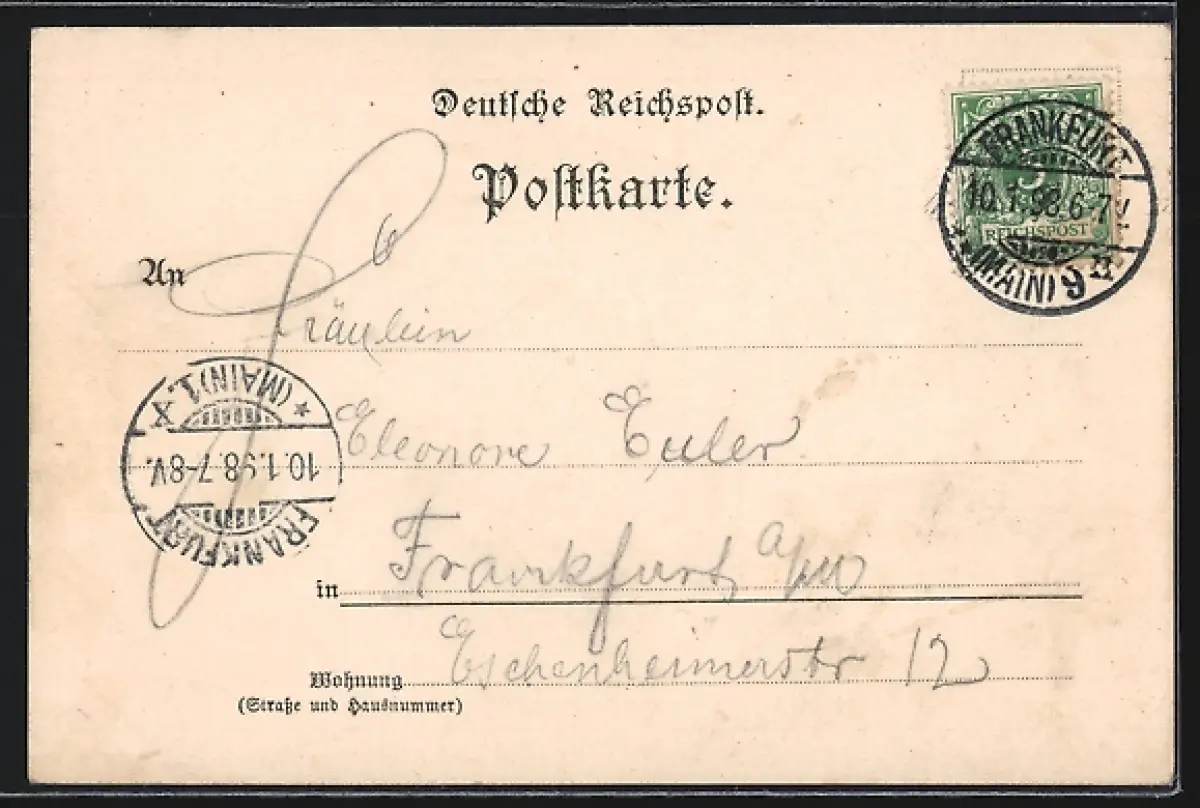 Deutsche Reichspost.
Postkarte.
5
REICHSPOST
FRANKFURT
10.1.98.6-7
(MAIN) 9
An
Fräulein
(MAIN) 1.
X
10.1.98.7-8V.
FRANKFURT
Eleonore Euler
in Frankfurt a/M
Wohnung Eschenheimerstr 12
(Straße und Hausnummer)